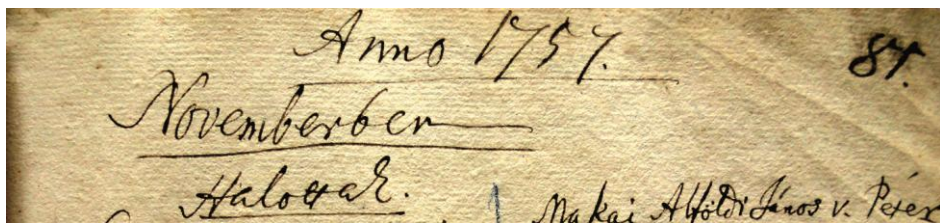 Anno 1757.
87.
Novemberben
Halottak.
Makai Alföldi János v. Péter